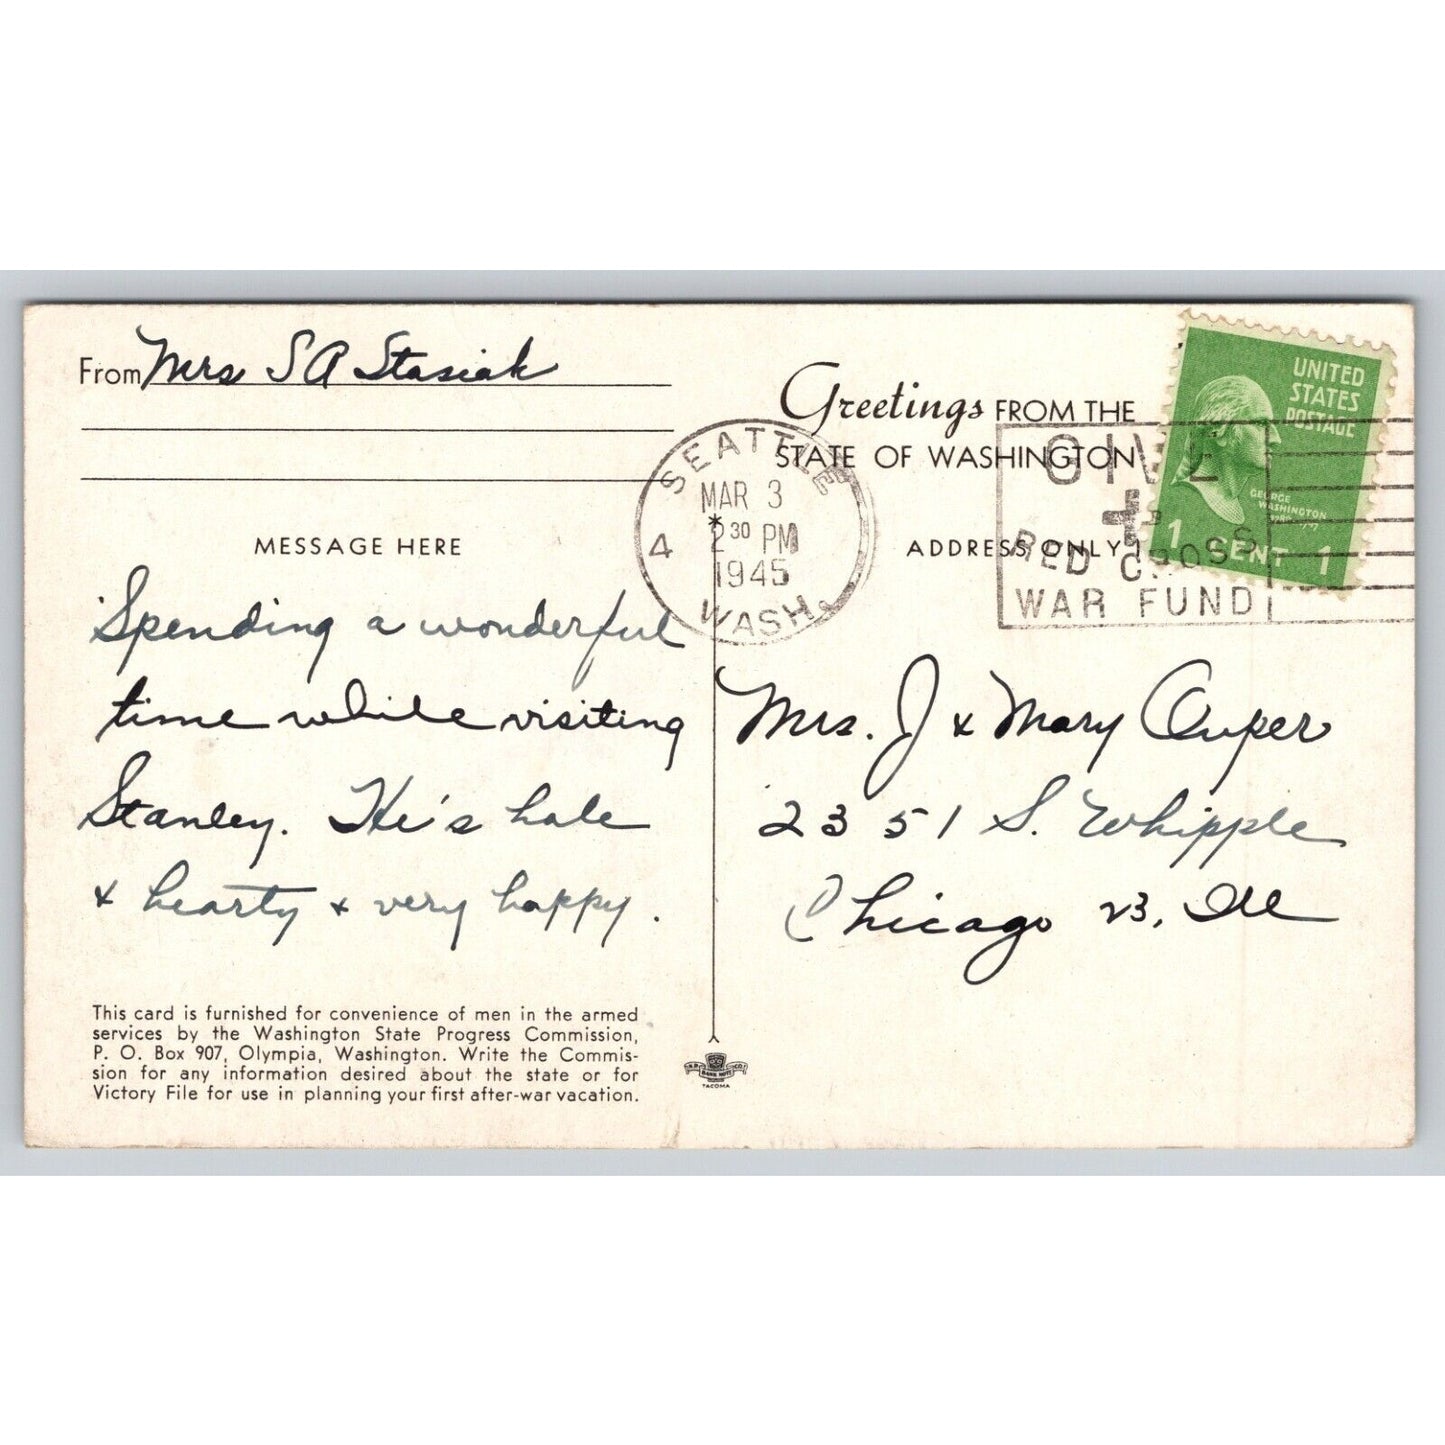 From Mrs S A Stasiak
MESSAGE HERE
Spending a wonderful
time while visiting
Stanley. He's hale
& hearty & very happy.
This card is furnished for convenience of men in the armed
services by the Washington State Progress Commission,
P. O. Box 907, Olympia, Washington. Write the Commis-
sion for any information desired about the state or for
Victory File for use in planning your first after-war vacation.
SEATTLE
MAR 3
2 30 PM
1945
4
WASH.
Greetings FROM THE
STATE OF WASHINGTON
ADDRESS ONLY
GIVE
RED CROSS
WAR FUND
UNITED
STATES
POSTAGE
GEORGE
WASHINGTON
1 CENT 1
Mrs. J & Mary
2351 S. Whipple
Chicago 23, Ill
BANK NOTE
TACOMA